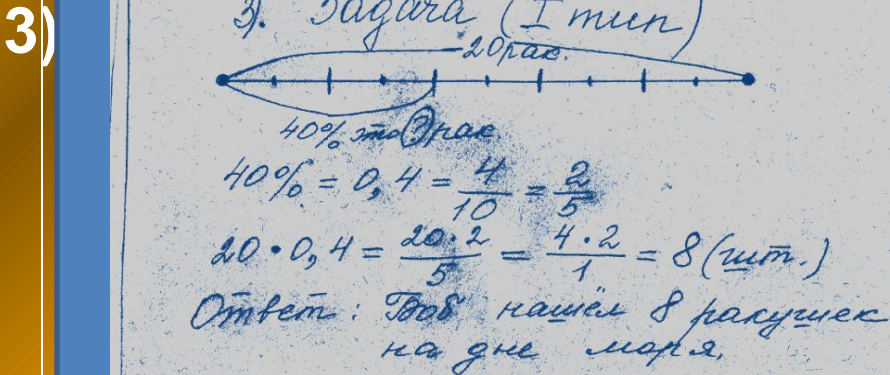 3)
3). Задача (I тип)
20рак.
40% это ? рак.
40% = 0,4 = 4/10 = 2/5
20 • 0,4 = 20·2/5 = 4·2/1 = 8 (шт.)
Ответ: Боб нашёл 8 ракушек
на дне моря.